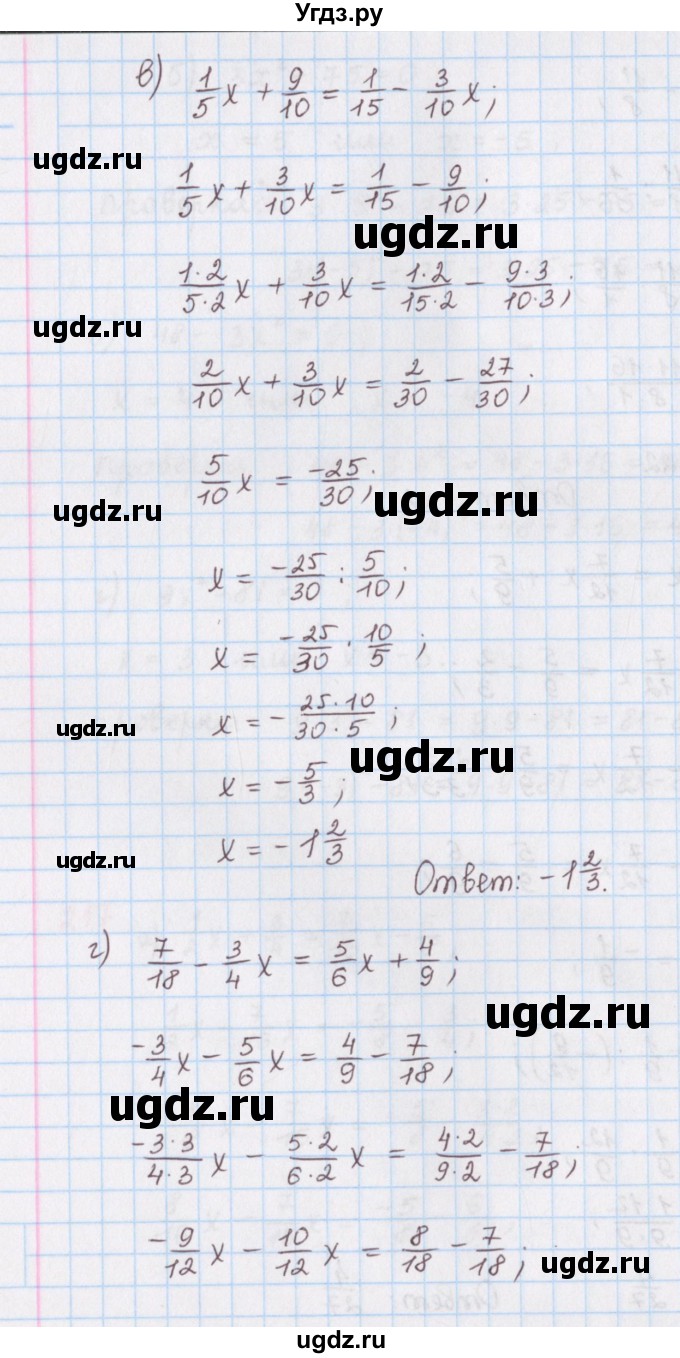 Угдз.ру
в) 1/5 x + 9/10 = 1/15 - 3/10 x;
ugdz.ru
1/5 x + 3/10 x = 1/15 - 9/10;
ugdz.ru
1·2/5·2 x + 3/10 x = 1·2/15·2 - 9·3/10·3;
ugdz.ru
2/10 x + 3/10 x = 2/30 - 27/30;
5/10 x = -25/30;
ugdz.ru ugdz.ru
x = -25/30 : 5/10;
x = -25/30 · 10/5;
x = - 25·10/30·5;
ugdz.ru ugdz.ru
x = - 5/3;
x = - 1 2/3
ugdz.ru
Ответ: - 1 2/3.
г) 7/18 - 3/4 x = 5/6 x + 4/9;
ugdz.ru
-3/4 x - 5/6 x = 4/9 - 7/18;
ugdz.ru
-3·3/4·3 x - 5·2/6·2 x = 4·2/9·2 - 7/18;
-9/12 x - 10/12 x = 8/18 - 7/18;
ugdz.ru
ugdz.ru